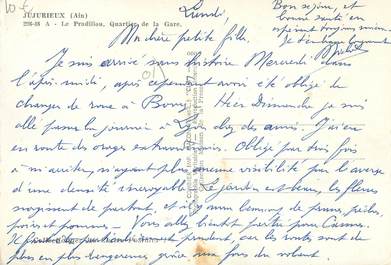 10 f
JUJURIEUX (Ain)
226-18 A - Le Pradillon, Quartier de la Gare.
Lundi,
Bon séjour, et
bonne santé en
espérant toujours mieux.
Je t'embrasse
Ma chère petite fille.
Je suis arrivé sans histoire Mercredi dans
l'après-midi, après cependant avoir été obligé de
changer de roue à Bourg. Hier Dimanche je suis
allé passer la journée à Lyon chez des amis. J'ai eu
en route des orages extraordinaires. Obligé par trois fois
à m'arrêter, n'ayant plus aucune visibilité par l'averse
d'une densité incroyable. Le jardin est beau, les fleurs
surgissent de partout, et il y a beaucoup de prunes, pêches,
poires et pommes. Vous allez bientôt partir pour Cannes.
cependant, car les routes sont de
plus en plus dangereuses, grâce aux fous du volant.